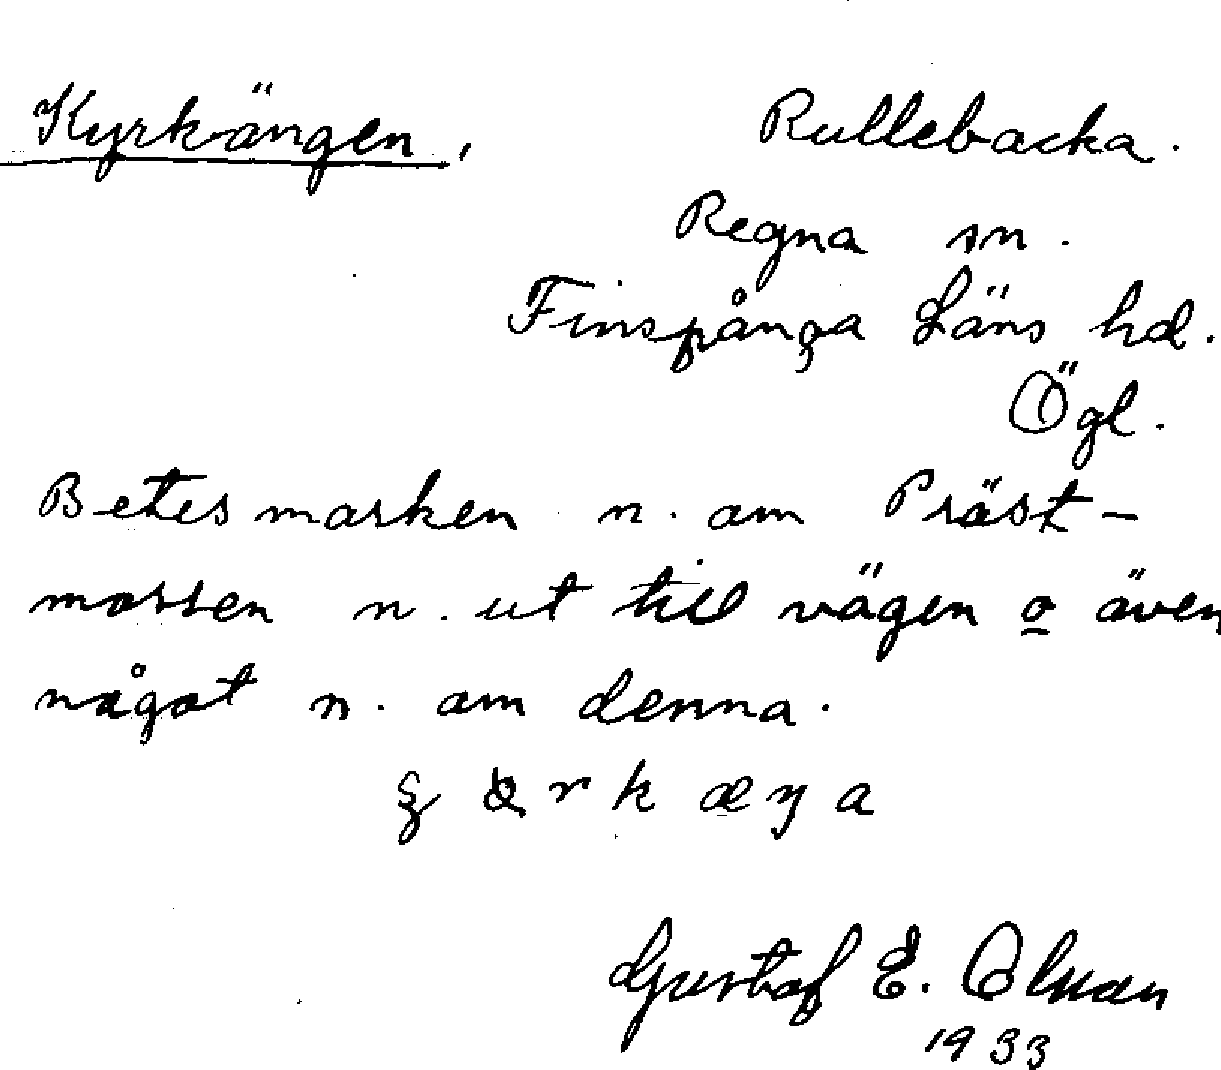 Kyrkängen, Rullebacka.
Regna sn.
Finspånga Läns hd.
Ögl.
Betesmarken n. om Präst-
mossen n. ut till vägen o även
något n. om denna.
r k æ ŋ a
Gustaf E. Olman
1933